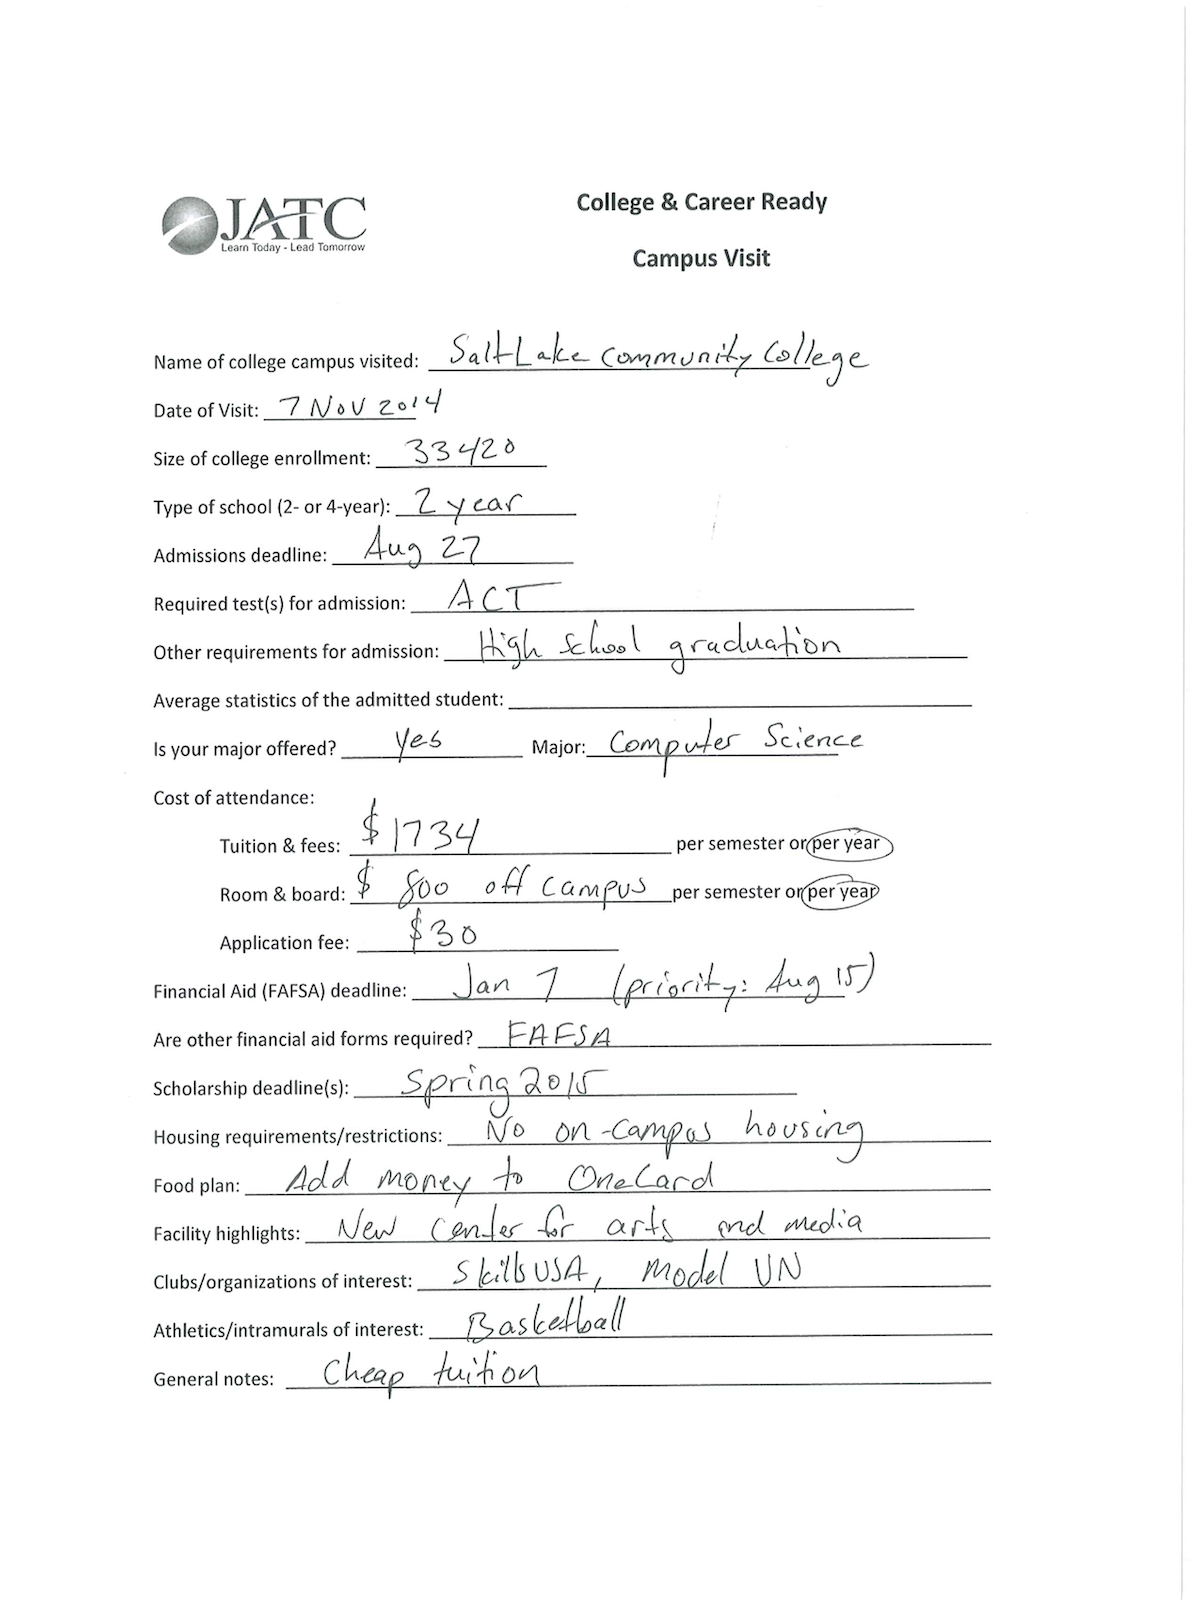 JATC
Learn Today - Lead Tomorrow
College & Career Ready
Campus Visit
Name of college campus visited: Salt Lake Community College
Date of Visit: 7 Nov 2014
Size of college enrollment: 33420
Type of school (2- or 4-year): 2 year
Admissions deadline: Aug 27
Required test(s) for admission: ACT
Other requirements for admission: High school graduation
Average statistics of the admitted student:
Is your major offered? yes Major: Computer Science
Cost of attendance:
Tuition & fees: $1734 per semester or per year
Room & board: $ 800 off campus per semester or per year
Application fee: $30
Financial Aid (FAFSA) deadline: Jan 7 (priority: Aug 15)
Are other financial aid forms required? FAFSA
Scholarship deadline(s): Spring 2015
Housing requirements/restrictions: No on-campus housing
Food plan: Add money to OneCard
Facility highlights: New Center for arts and media
Clubs/organizations of interest: SkillsUSA, Model UN
Athletics/intramurals of interest: Basketball
General notes: Cheap tuition